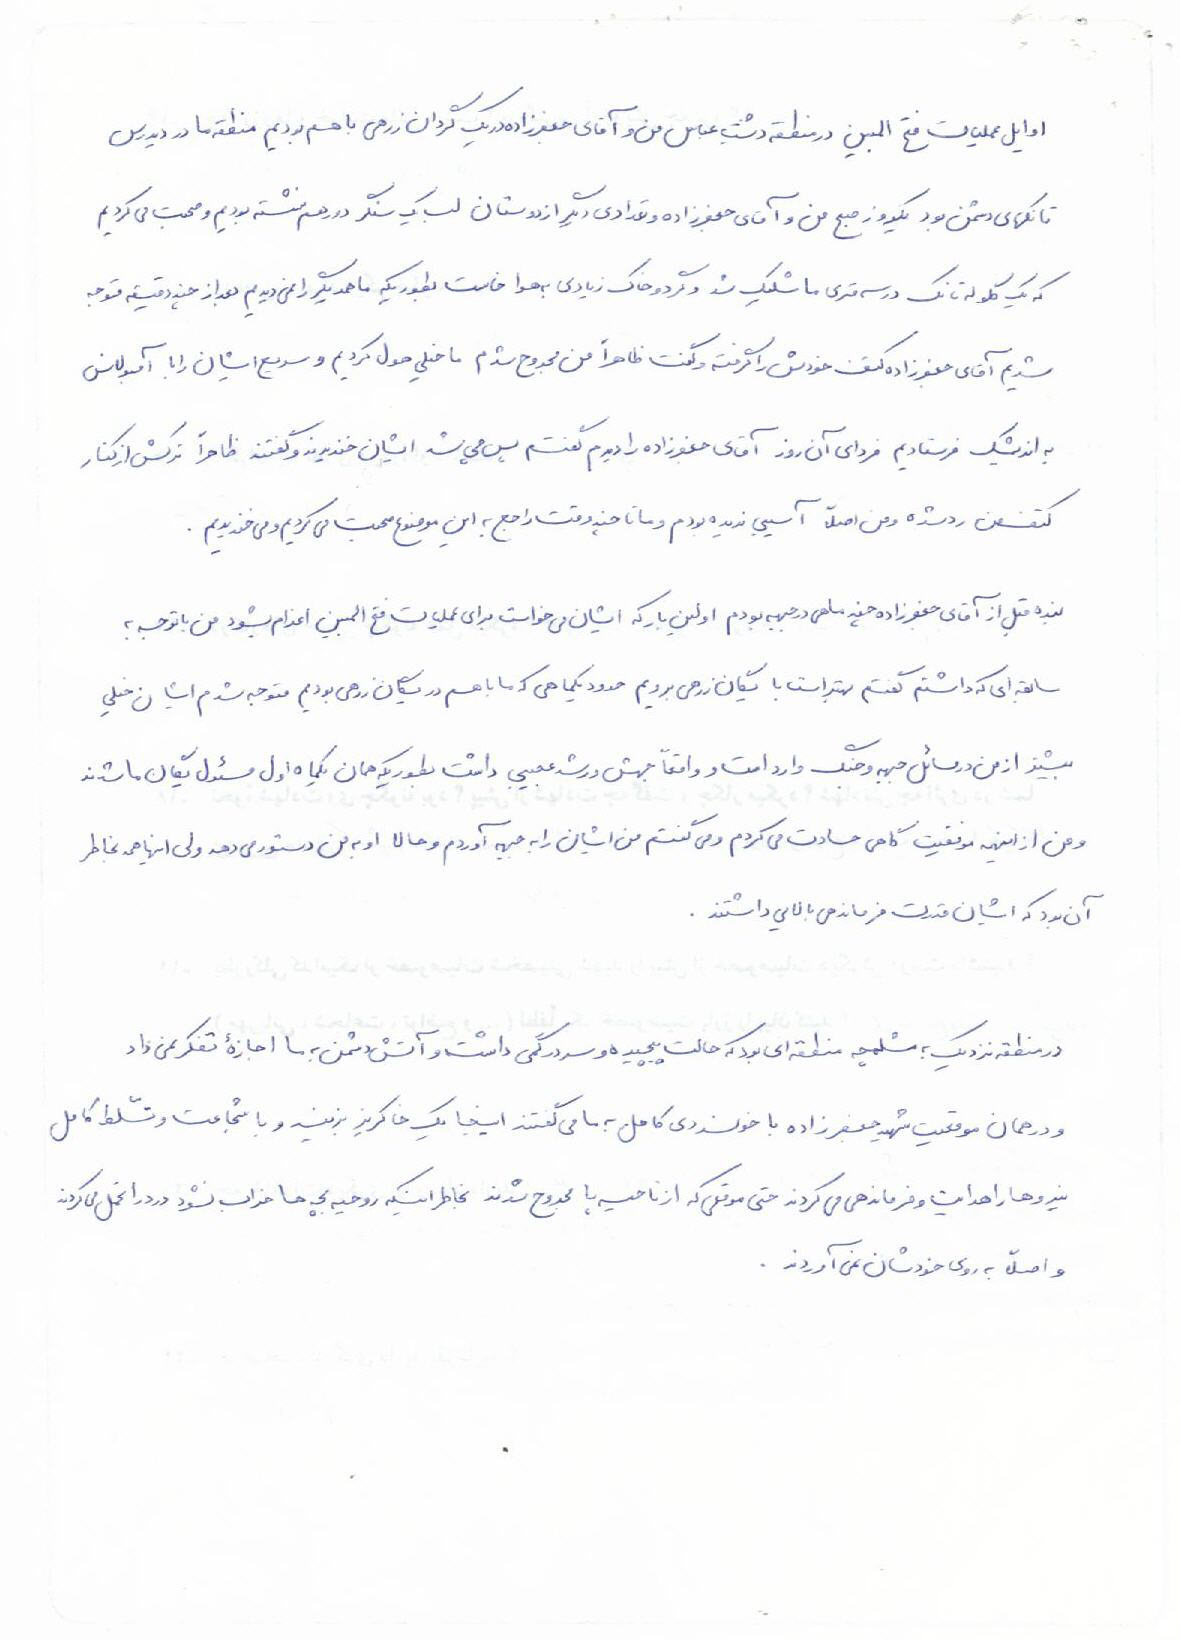 اوایل عملیات فتح المبین در منطقه دشت عباس من و آقای جعفرزاده در یک گردان زرهی با هم بودیم منطقه ما در دیدرس
تانکهای دشمن بود یکروز صبح من و آقای جعفرزاده و تعدادی دیگر از دوستان لب یک سنگر دور هم نشسته بودیم و صحبت می کردیم
که یک گلوله تانک در سه متری ما شلیک شد و گرد و خاک زیادی به هوا خاست بطوریکه ما همدیگر را نمی دیدیم بعد از چند دقیقه متوجه
شدیم آقای جعفرزاده کتف خودش را گرفته و گفت ظاهراً من مجروح شدم ما خیلی هول کردیم و سریع ایشان را با آمبولانس
به اندیمشک فرستادیم فردای آن روز آقای جعفرزاده را دیدم گفتم پس چی شد ایشان خندیدند و گفتند ظاهراً ترکش از کنار
کتف من رد شده و من اصلاً آسیبی ندیده بودم و ما تا چند وقت راجع به این موضوع صحبت می کردیم و می خندیدیم .
بنده قبل از آقای جعفرزاده چند ماهی در جبهه بودم اولین بار که ایشان می خواست برای عملیات فتح المبین اعزام بشود من با توجه به
سابقه ای که داشتم گفتم بهتر است با یگان زرهی برویم حدود یکماهی که ما با هم در یگان زرهی بودیم متوجه شدم ایشان خیلی
بیشتر از من در مسائل جبهه و جنگ وارد است و واقعاً جهش و رشد عجیبی داشت بطوریکه همان یکماه اول مسئول یگان ما شدند
و من از اینهمه موفقیت گاهی حسادت می کردم و می گفتم من ایشان را به جبهه آوردم و حالا او به من دستور می دهد ولی اینها همه بخاطر
آن بود که ایشان قدرت فرماندهی بالایی داشتند .
در منطقه نزدیک به شلمچه منطقه ای بود که حالت پیچیده و سردرگمی داشت و آتش دشمن به ما اجازۀ تفکر نمی داد
و در همان موقعیت شهید جعفرزاده با خونسردی کامل به ما می گفتند اینجا یک خاکریز بزنید و با شجاعت و تسلّط کامل
نیروها را هدایت و فرماندهی می کردند حتی موقعی که از ناحیه پا مجروح شدند بخاطر اینکه روحیه بچه ها خراب نشود درد را تحمل می کردند
و اصلاً به روی خودشان نمی آوردند .